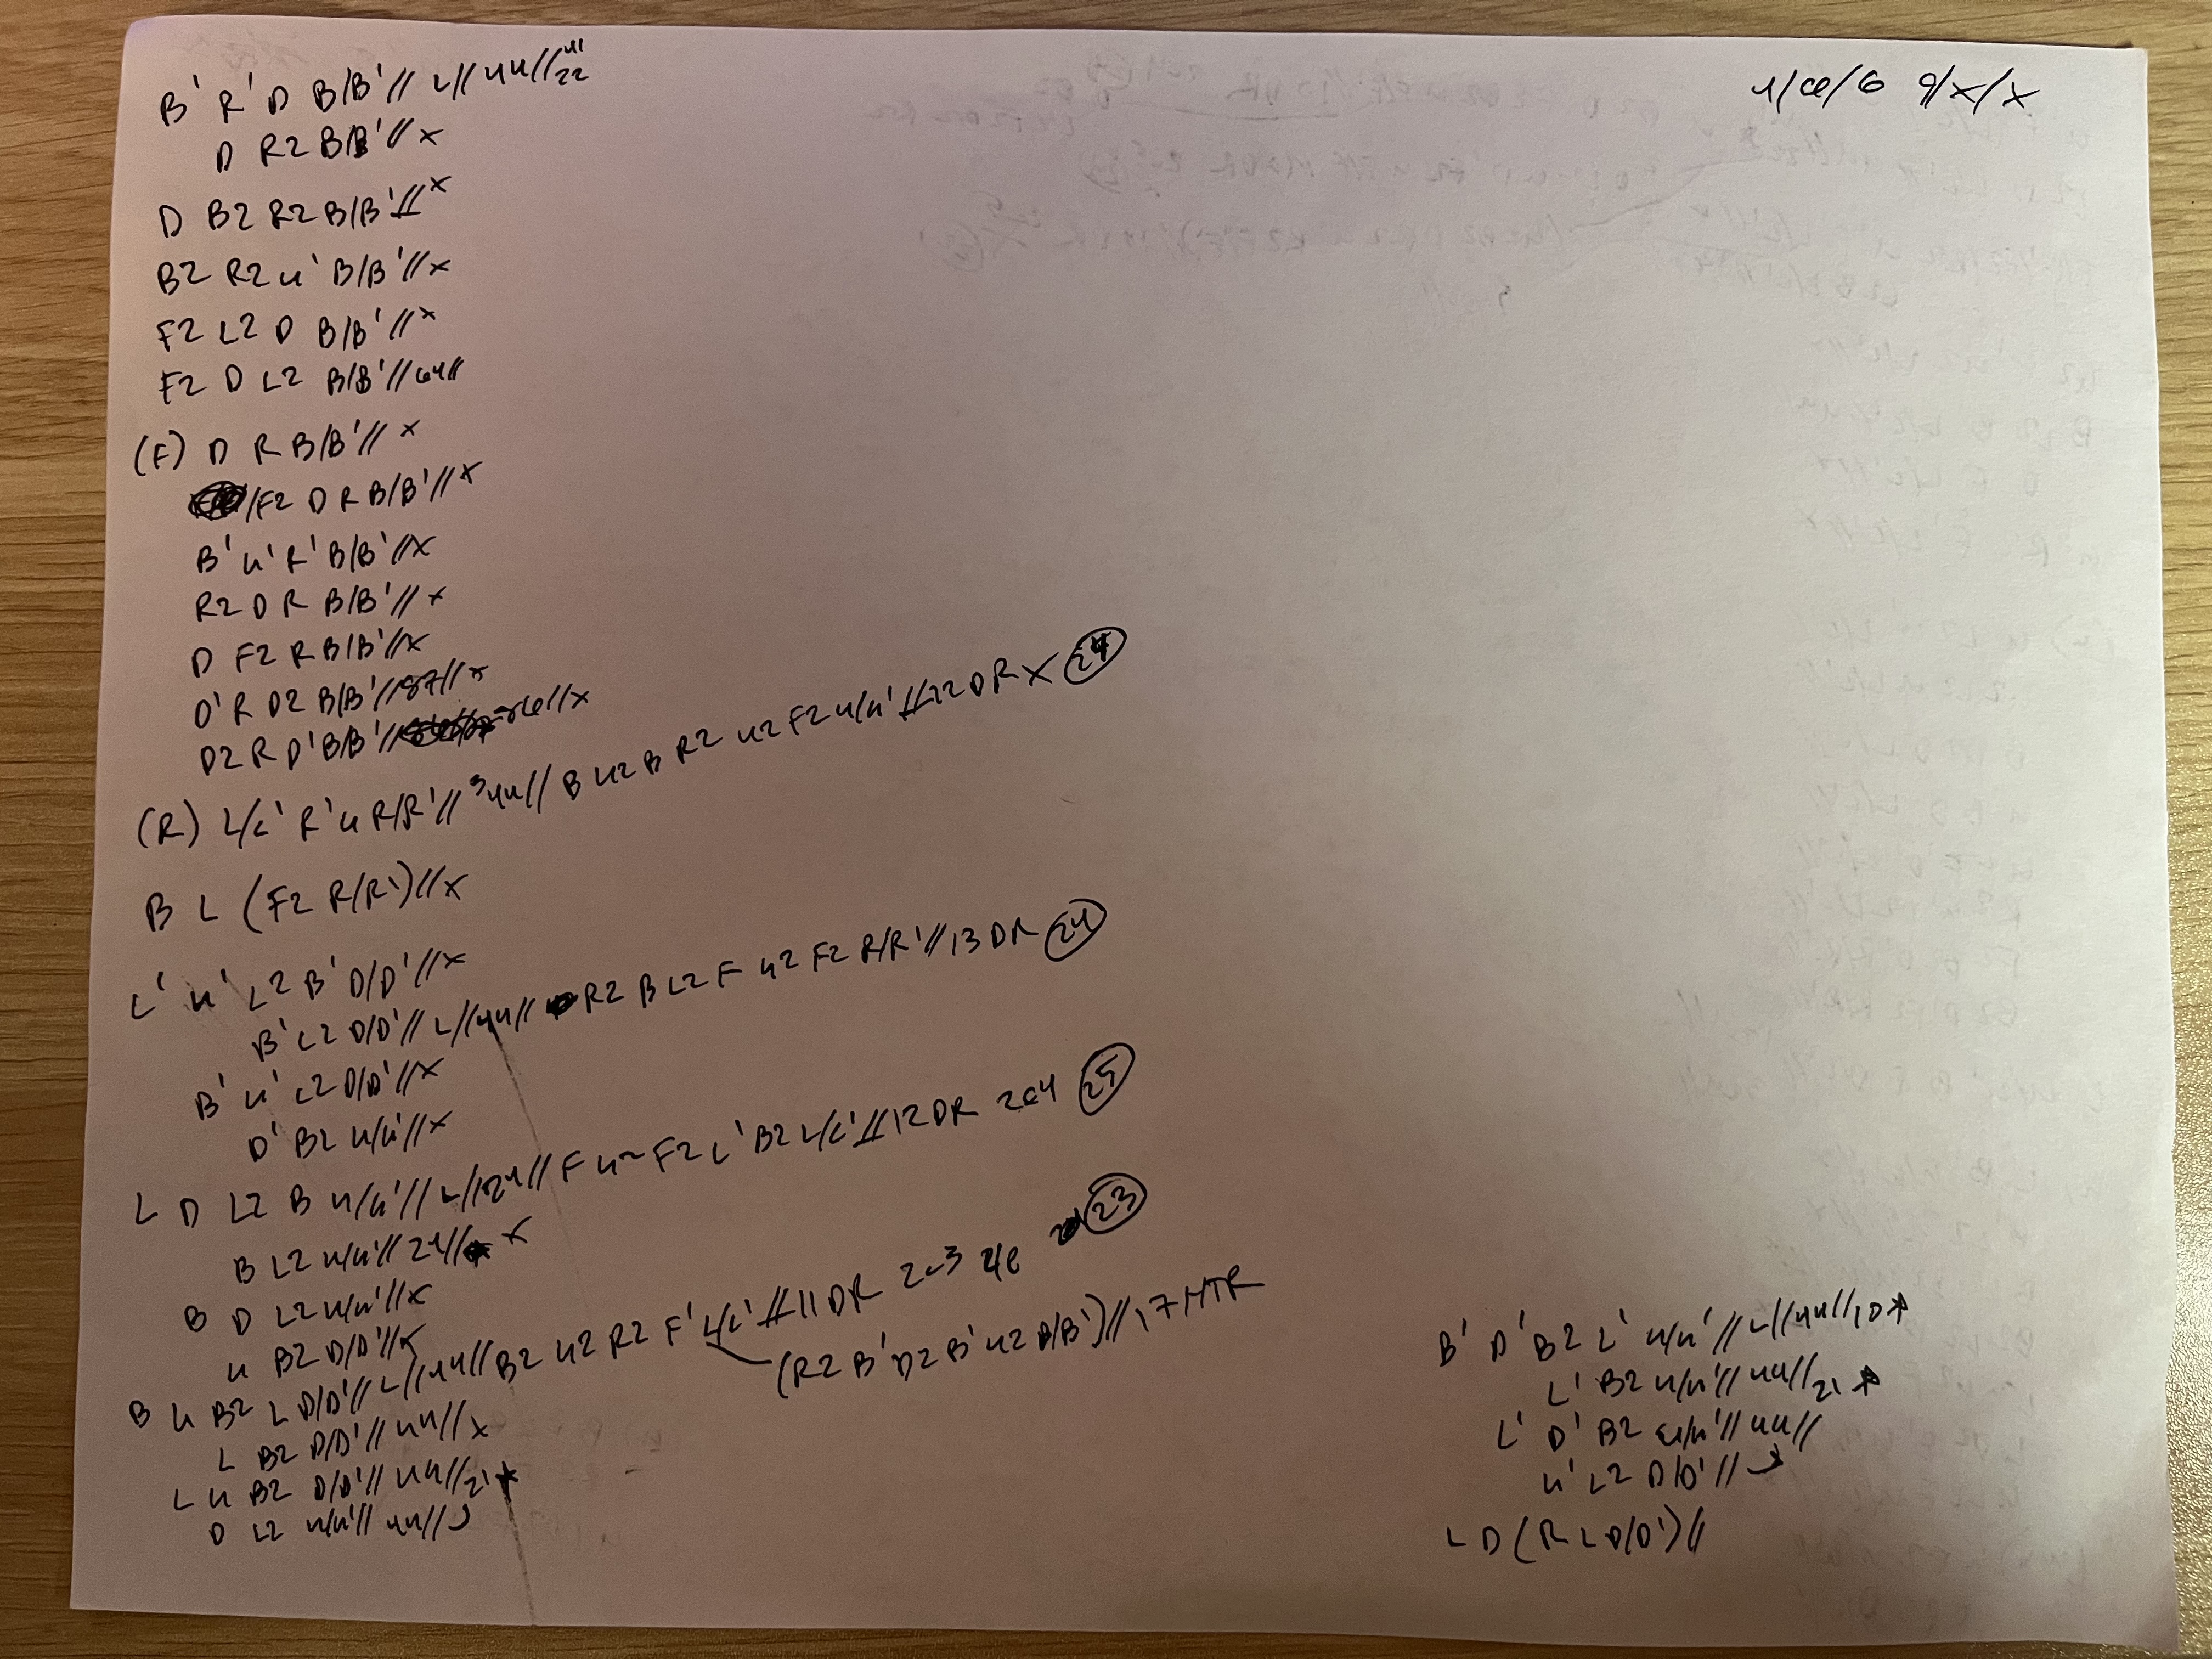 4/a/6 9/x/x
B' R' D B/B' // L // 44 // 22
D R2 B/B' // x
D B2 R2 B/B' // x
B2 R2 u' B/B' // x
F2 L2 D B/B' // x
F2 D L2 B/B' // 64 //
(F) D R B/B' // x
/F2 D R B/B' // x
B' u' R' B/B' // x
R2 D R B/B' // x
D F2 R B/B' // x
D' R D2 B/B' // 87 // x
D2 R D' B/B' // // x
(R) L/L' R' u R/R' // 344 // B u2 B R2 u2 F2 u/u' // 12 DR x 24
B L (F2 R/R') // x
L' u' L2 B' D/D' // x
B' L2 D/D' // L // 44 // R2 B L2 F u2 F2 R/R' // 13 DR 24
B' u' L2 D/D' // x
D' B2 u/u' // x
L D L2 B u/u' // L // 24 // F u2 F2 L' B2 L/L' // 12 DR 2c4 25
B L2 u/u' // 24 // x
B D L2 u/u' // x
u B2 D/D' // x
B u B2 L D/D' // L // 44 // B2 u2 R2 F' L/L' // 11 DR 2c3 4e 23
(R2 B' D2 B' u2 B/B') // 17 HTR
L B2 D/D' // 44 // x
L u B2 D/D' // 44 // 21 *
D L2 u/u' // 44 //
B' D' B2 L' u/u' // L // 44 // 10 *
L' B2 u/u' // 44 // 21 *
L' D' B2 u/u' // 44 //
u' L2 D/D' //
L D (R L D/D') //